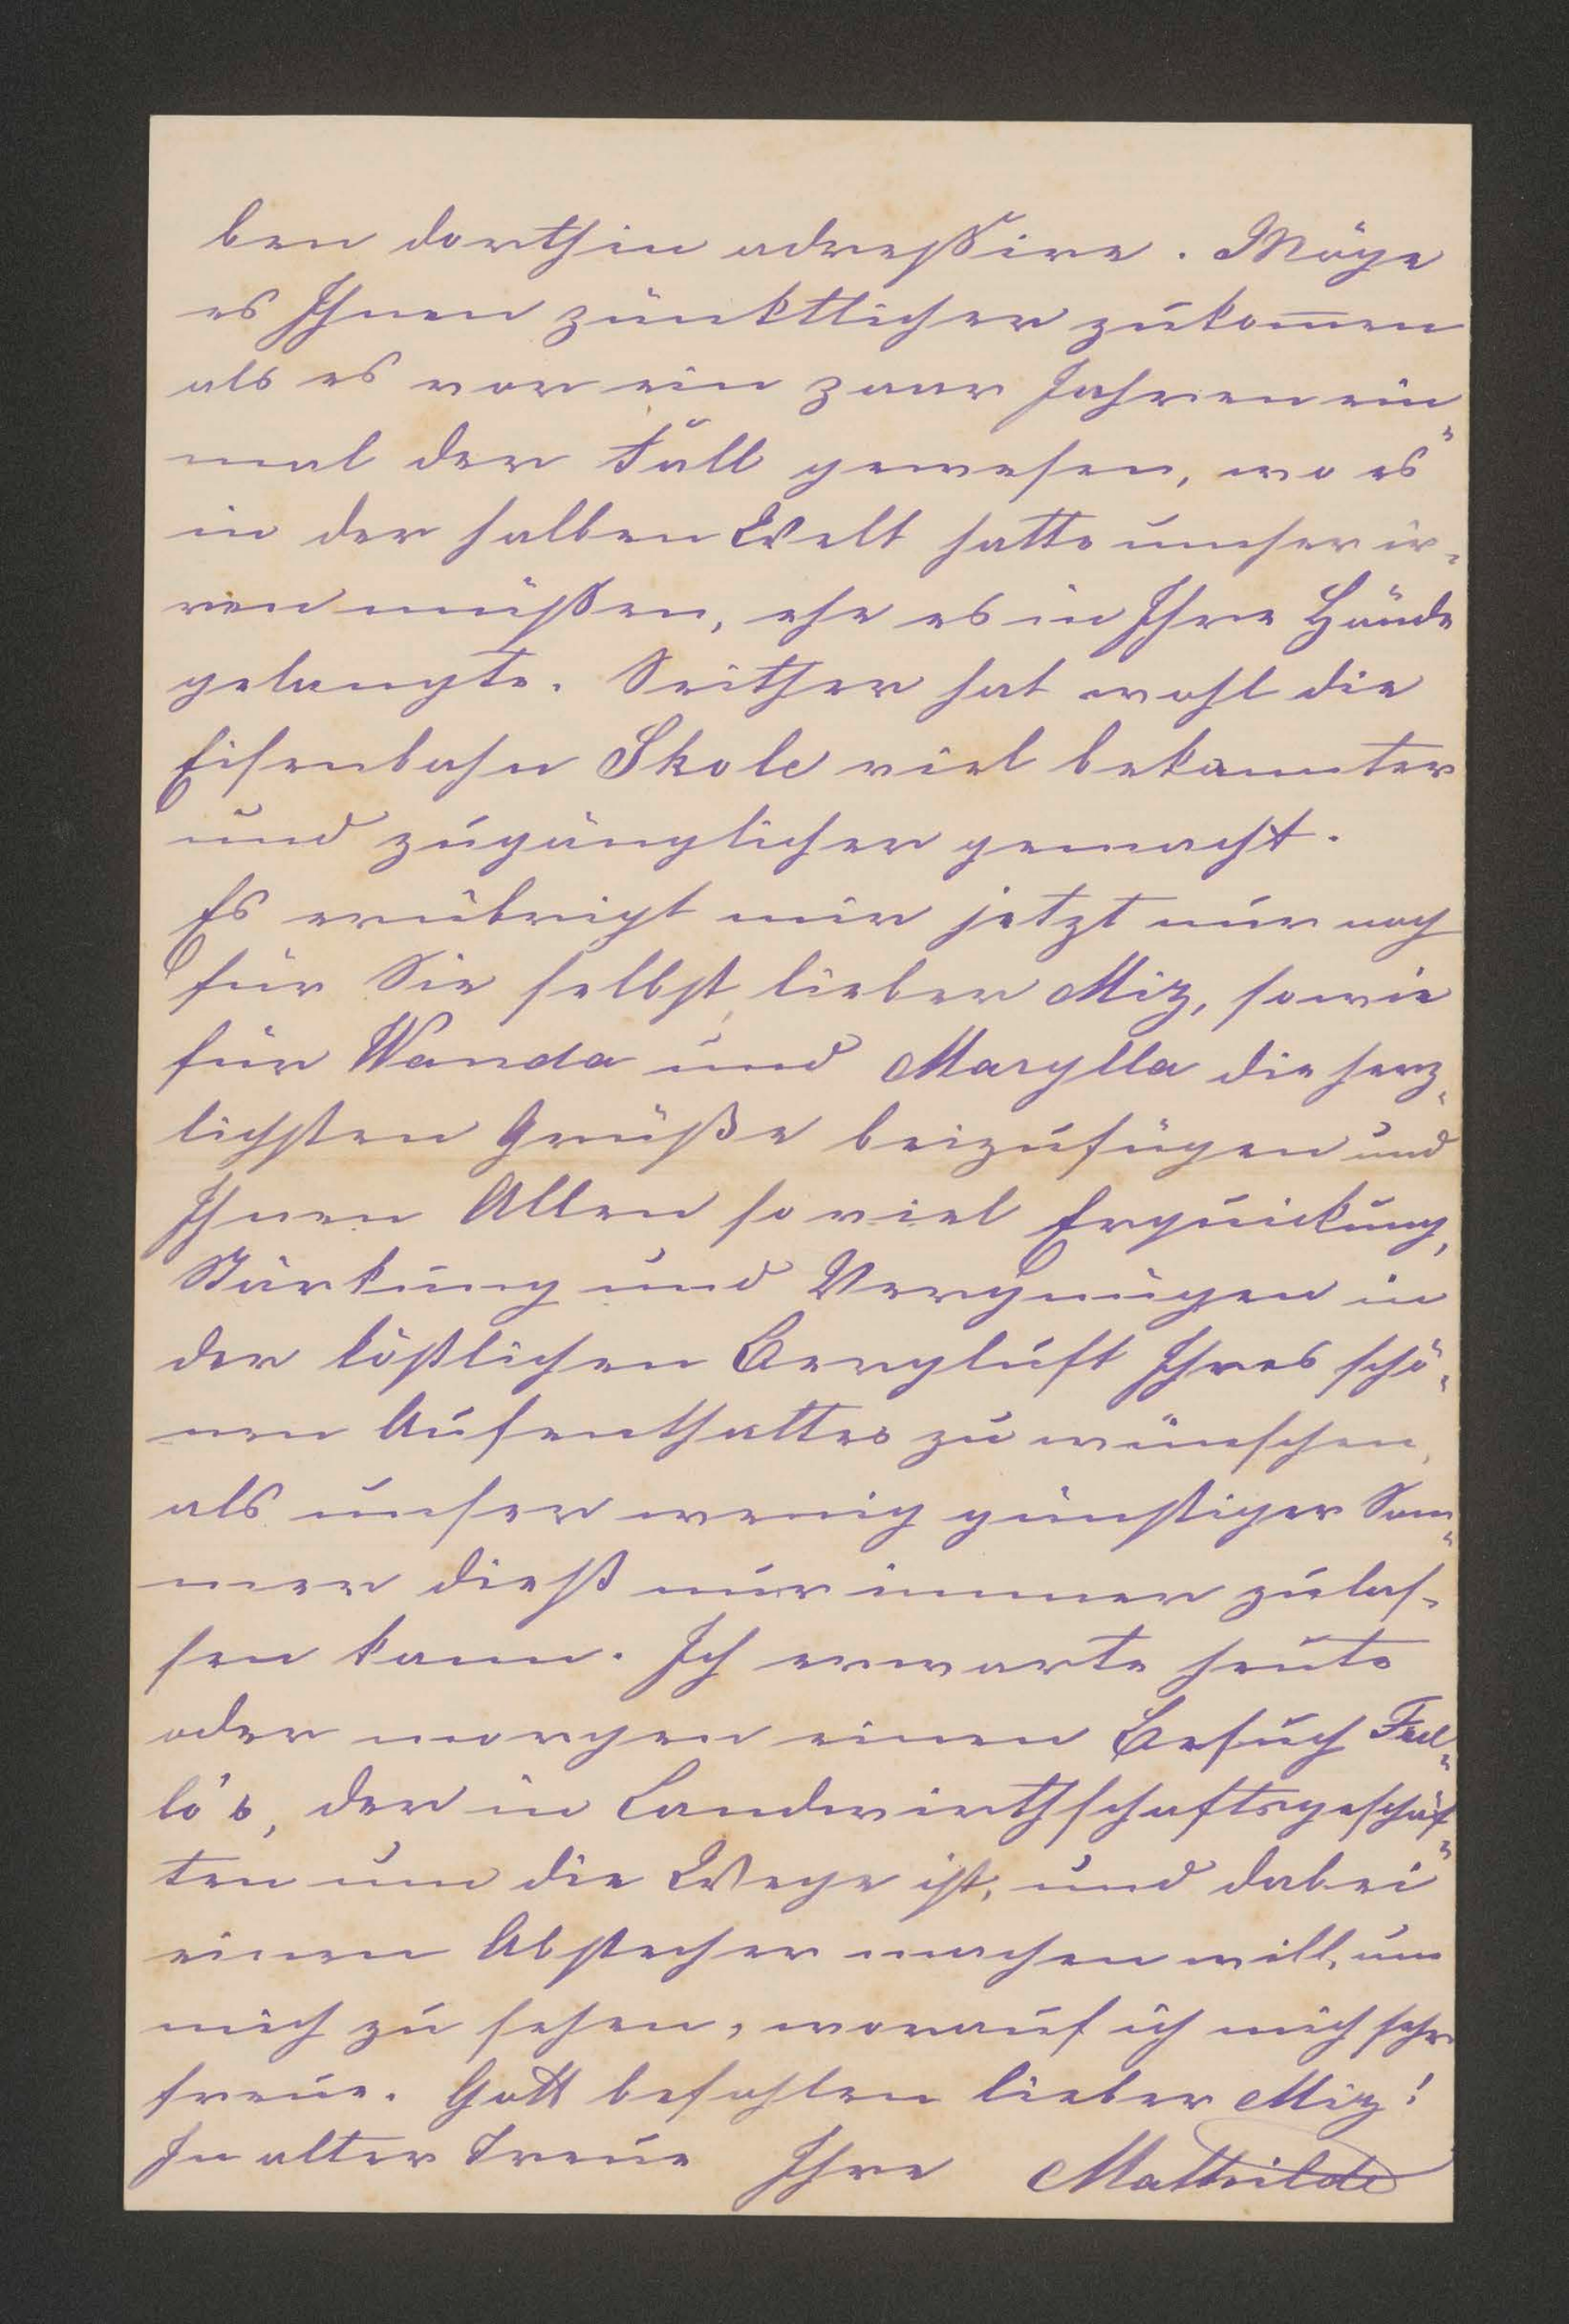 ben dorthin adreßire. Möge
es Ihnen pünktlicher zukom̅en
als es vor ein paar Jahren ein„
mal der Fall gewesen, wo es
in der halben Welt hatte umher ir„
ren müßen, ehe es in Ihre Hände
gelangte. Seither hat wohl die
Eisenbahn Skole viel bekannter
und zugänglicher gemacht.
Es erübrigt mir jetzt nur noch
für Sie selbst, lieber Miz, sowie
für Wanda und Marylla die herz„
lichsten Grüße beizufügen und
Ihnen Allen so viel Erquickung,
Stärkung und Vergnügen in
der köstlichen Bergluft Ihres schö„
nen Aufenthaltes zu wünschen,
als unser wenig günstiger Som„
mer dieß nur immer zulas„
sen kann. Ich erwarte heute
oder morgen einen Besuch Ful„
lo's, der in Landwirthschaftsgeschäf„
ten um die Wege ist, und dabei
einen Abstecher machen will, um
mich zu sehen, worauf ich mich sehr
freue. Gott befohlen lieber Miz!
In alter Treue Ihre Mathilde